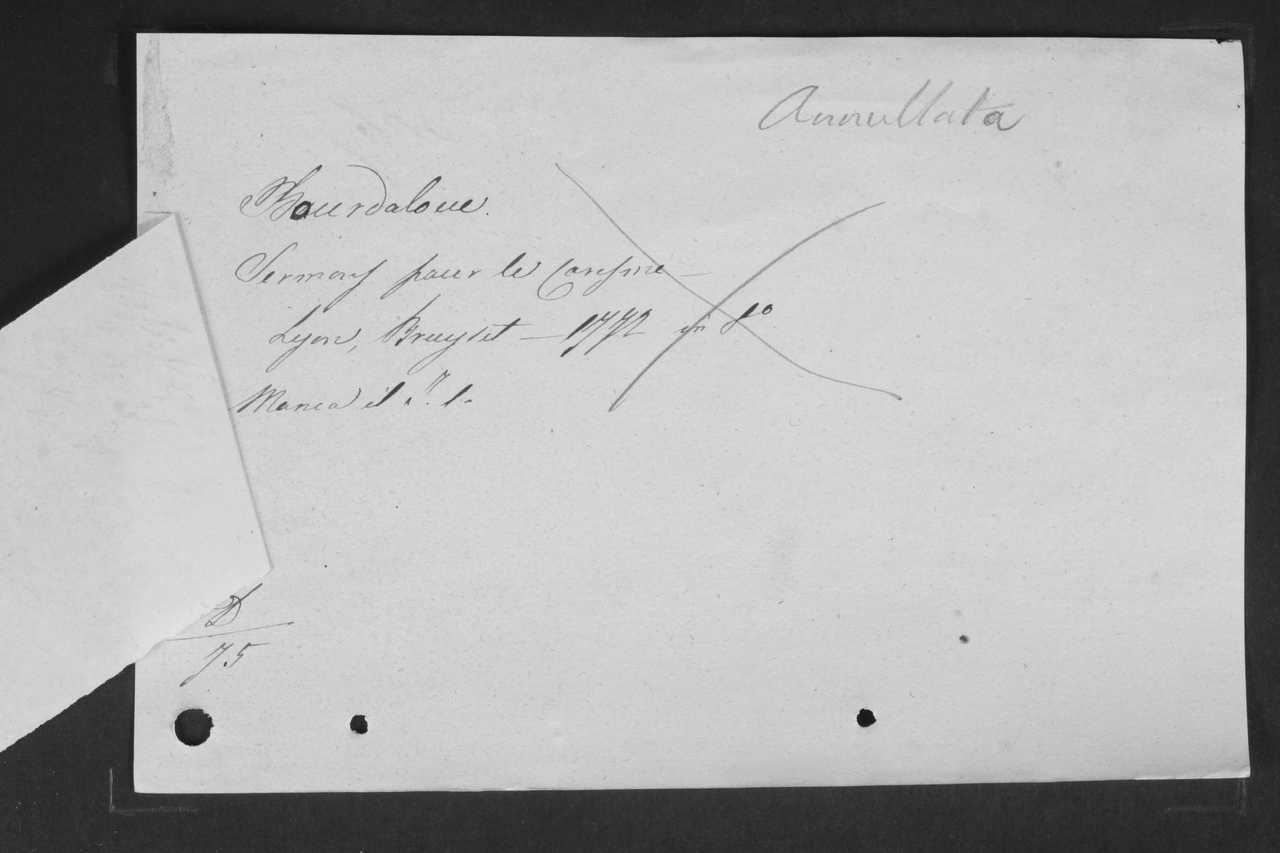 Annullata
Bourdaloue.
Sermons pour le Caresme –
Lyon, Bruyset – 1772 in 8º
Manca il 1.
D
75